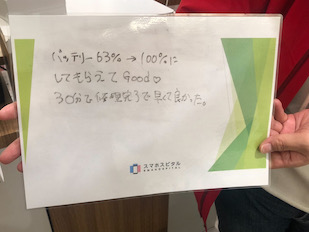 バッテリー63%→100%に
してもらえてGood♡
30分で修理完了で早くて良かった。
スマホスピタル
SMAHOSPITAL